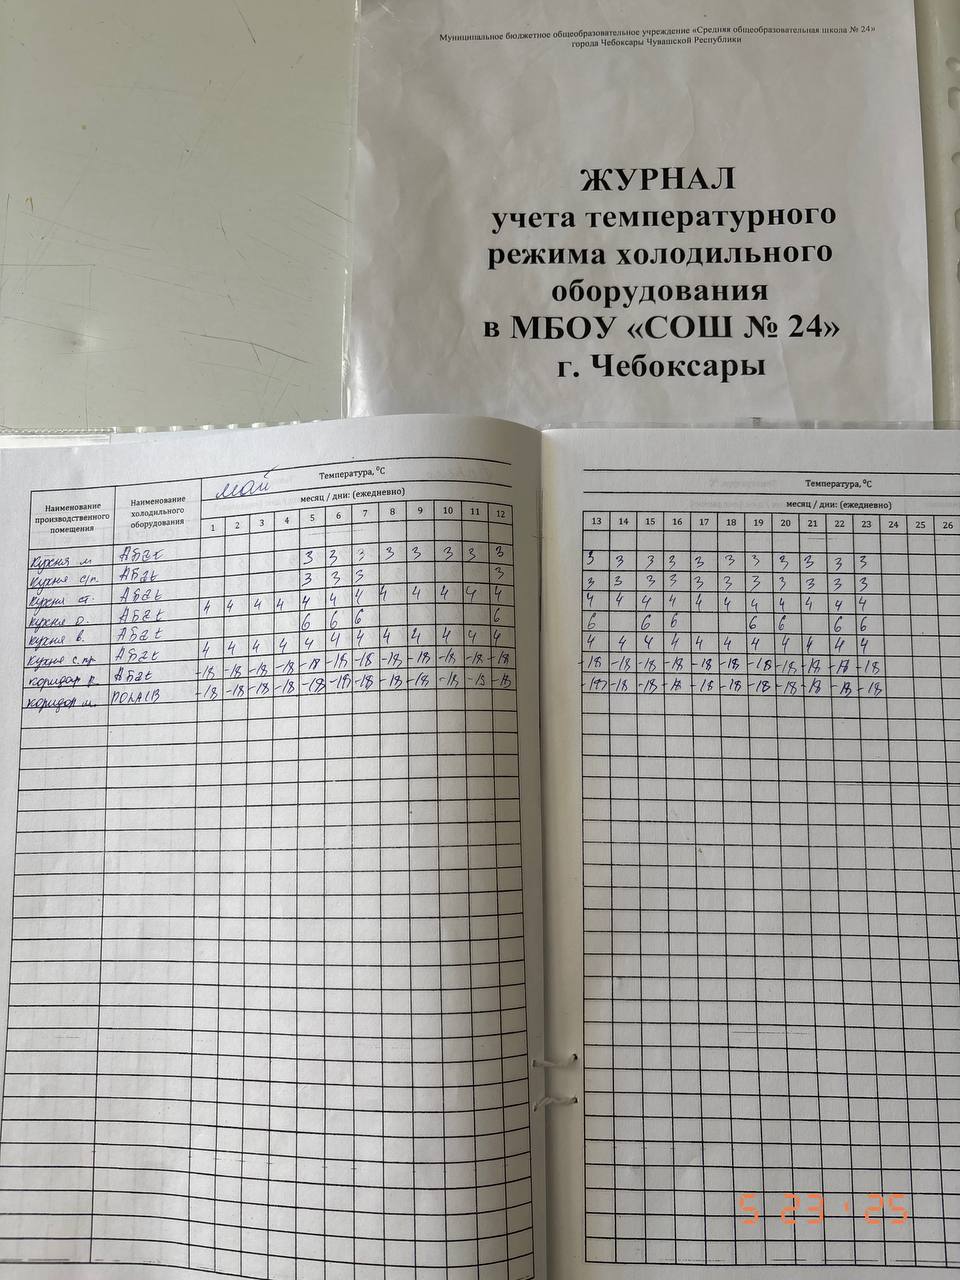 Муниципальное бюджетное общеобразовательное учреждение «Средняя общеобразовательная школа № 24»
города Чебоксары Чувашской Республики
ЖУРНАЛ
учета температурного
режима холодильного
оборудования
в МБОУ «СОШ № 24»
г. Чебоксары
Наименование производственного помещения
Наименование холодильного оборудования
май
Температура, ⁰С
месяц / дни: (ежедневно)
1 2 3 4 5 6 7 8 9 10 11 12
Температура, ⁰С
месяц / дни: (ежедневно)
13 14 15 16 17 18 19 20 21 22 23 24 25 26
кухня м АБat 3 3 3 3 3 3 3 3 3 3 3 3 3 3 3 3 3 3 3
кухня с/п. АБat 3 3 3 3 3 3 3 3 3 3 3 3 3 3 3
кухня ст. АБat 4 4 4 4 4 4 4 4 4 4 4 4 4 4 4 4 4 4 4 4 4 4 4
кухня о. АБat 6 6 6 6 6 6 6 6 6 6 6
кухня в. АБat 4 4 4 4 4 4 4 4 4 4 4 4 4 4 4 4 4 4 4 4 4 4 4
кухня с.пр АБat -18 -18 -18 -18 -18 -18 -18 -18 -18 -18 -18 -18 -18 -18 -18 -18 -18 -18 -18 -18 -18 -18 -18
коридор р. АБat -18 -18 -18 -18 -18 -18 -18 -18 -18 -18 -18 -18 -18 -18 -18 -18 -18 -18 -18 -18 -18 -18 -18
коридор м.
5 23 '25